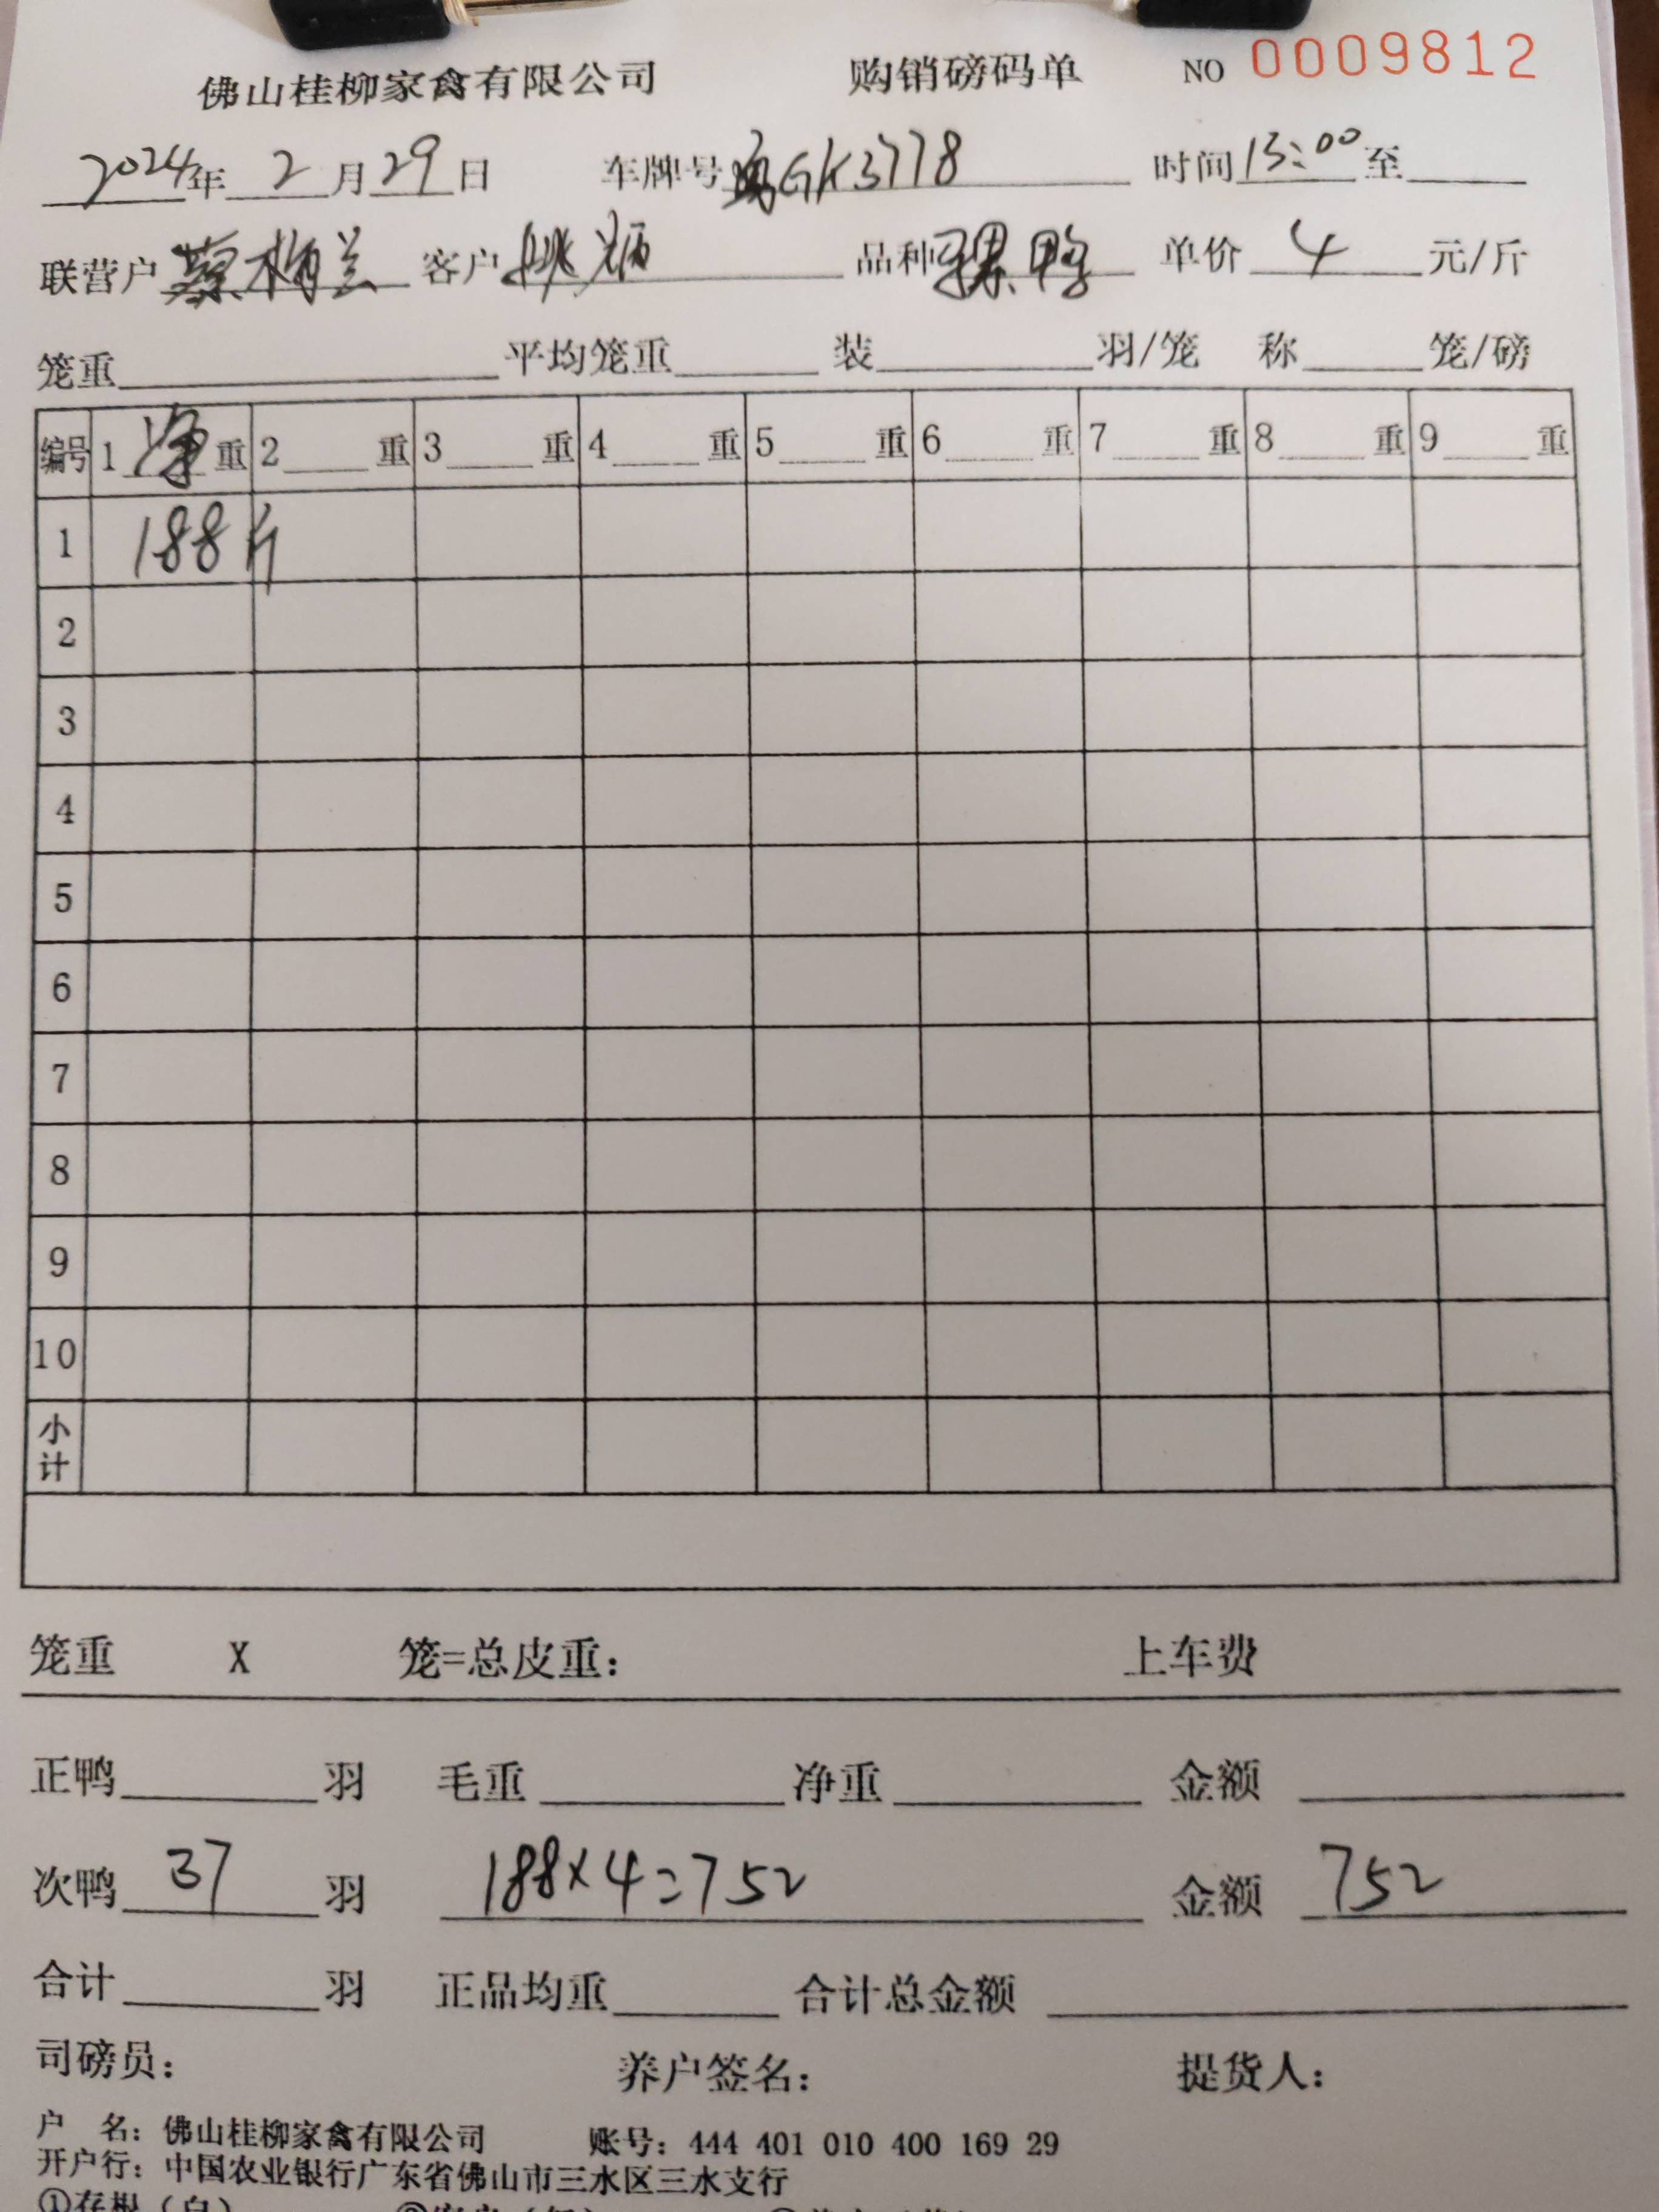 佛山桂柳家禽有限公司 购销磅码单 NO 0009812
2024年 2 月 29 日 车牌号 GK3778 时间 13:00 至
联营户 蔡梅兰 客户 姚炳 品种 鸭 单价 4 元/斤
笼重 平均笼重 装 羽/笼 称 笼/磅
编号 1 净 重 2 重 3 重 4 重 5 重 6 重 7 重 8 重 9 重
1 188斤
2
3
4
5
6
7
8
9
10
小计
笼重 X 笼=总皮重: 上车费
正鸭 羽 毛重 净重 金额
次鸭 37 羽 188×4=752 金额 752
合计 羽 正品均重 合计总金额
司磅员: 养户签名: 提货人:
户 名: 佛山桂柳家禽有限公司 账号: 444 401 010 400 169 29
开户行: 中国农业银行广东省佛山市三水区三水支行